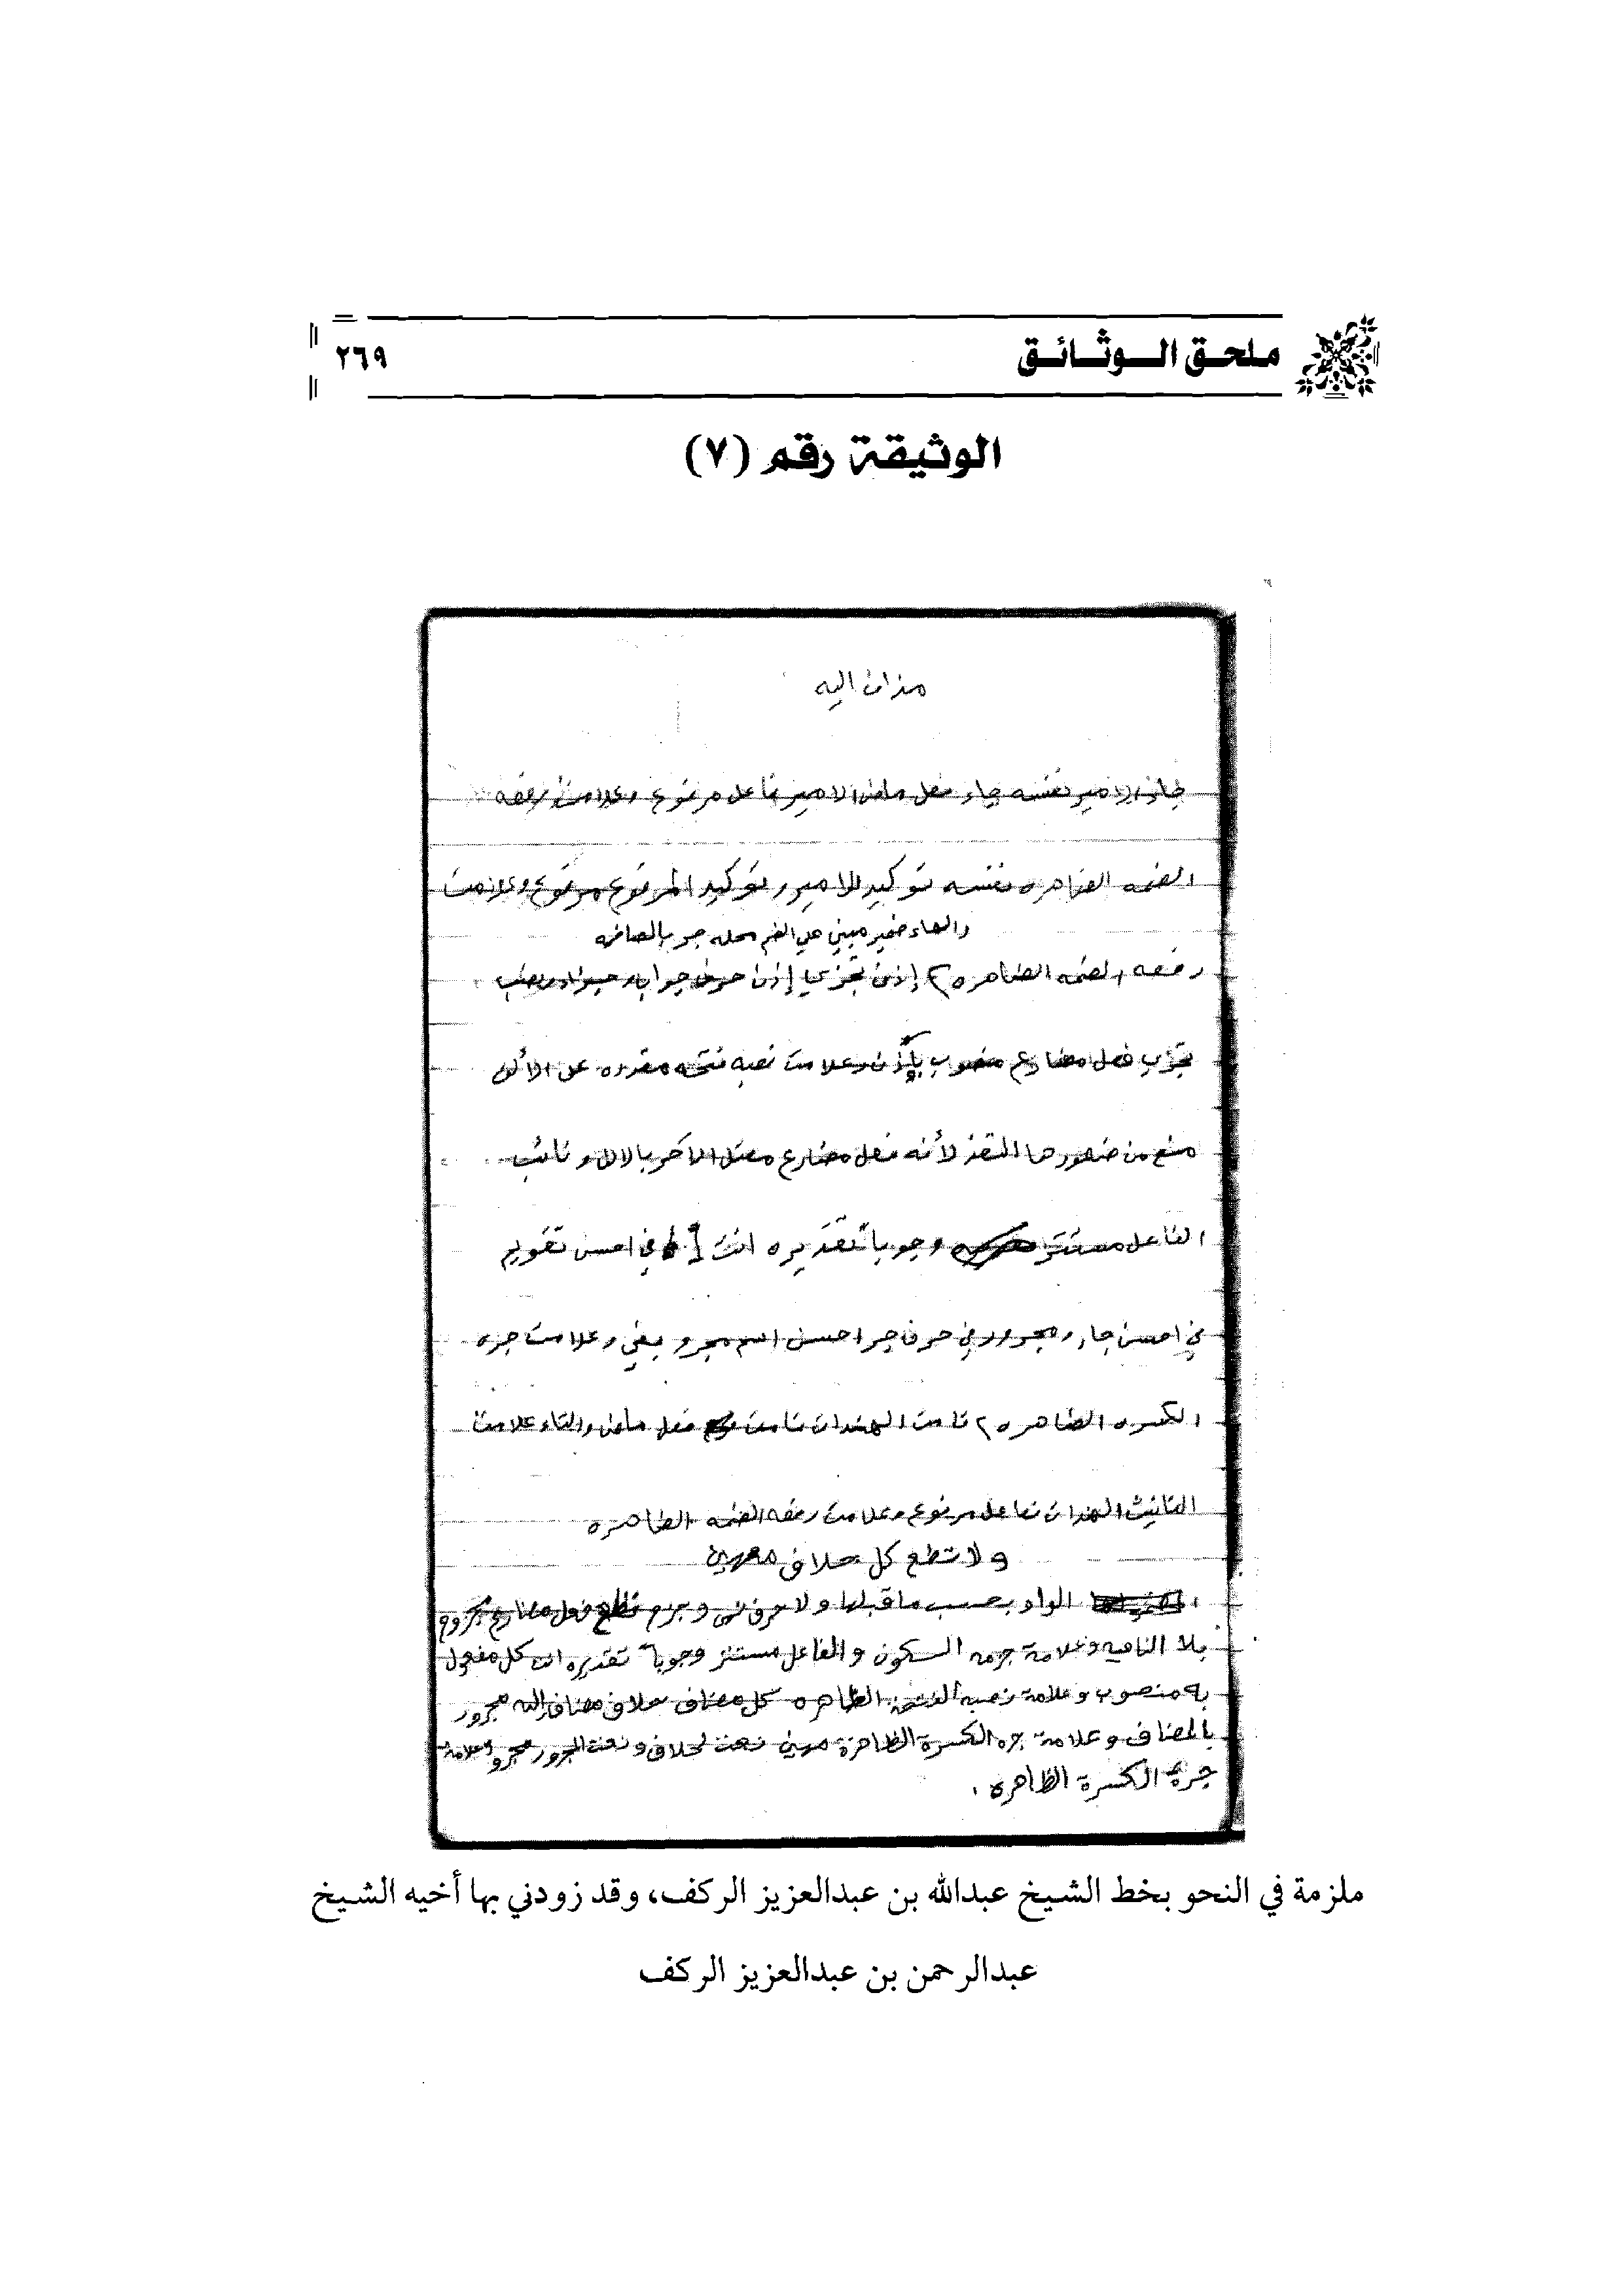 ملحق الوثائق
٢٦٩
الوثيقة رقم (٧)
اليه
الامير نفسه جاء فعل ماض الامير فاعل مرفوع وعلامت رفعه
الضمه الضاهره نفسه توكيد للامير وتوكيد المرفوع مرفوع وعلامت
والهاء ضمير مبني علي الضم محله جر بالضافه
رفعه الضمه الضاهره ) إذن تجزى إذن حرف جواب
فعل مضارع منصوب بإذن وعلامت نصبه فتحه مقدره على الألف
منع من ضهورها التعذر لأنه فعل مضارع معتل الآخر بالالف ونائب
الفاعل مستتر وجوباً تقديره انت في احسن تقويم
في احسن جار ومجرور في حرف جر احسن اسم مجرو بفي وعلامت جره
الكسره الضاهره ) قامت الهندات قامت فعل ماض والتاء علامت
التانيث الهندات فاعل مرفوع وعلامت رفعه الضمه الضاهره
ولا تطع كل حلاف مهين
الواو بحسب ماقبلها ولا حرف نهي وجزم تطع فعل مضارع مجزوم
بلا الناهيه وعلامة جزمه السكون والفاعل مستتر وجوباً تقديره انت كل مفعول
به منصوب وعلامة نصبه الفتحة الظاهره كل مضاف حلاف مضاف اليه مجرور
بالمضاف وعلامة جره الكسرة الظاهرة مهين نعت لحلاف ونعت المجرور مجرو وعلامة
جره الكسرة الظاهره .
ملزمة في النحو بخط الشيخ عبدالله بن عبدالعزيز الركف، وقد زودني بها أخيه الشيخ
عبدالرحمن بن عبدالعزيز الركف